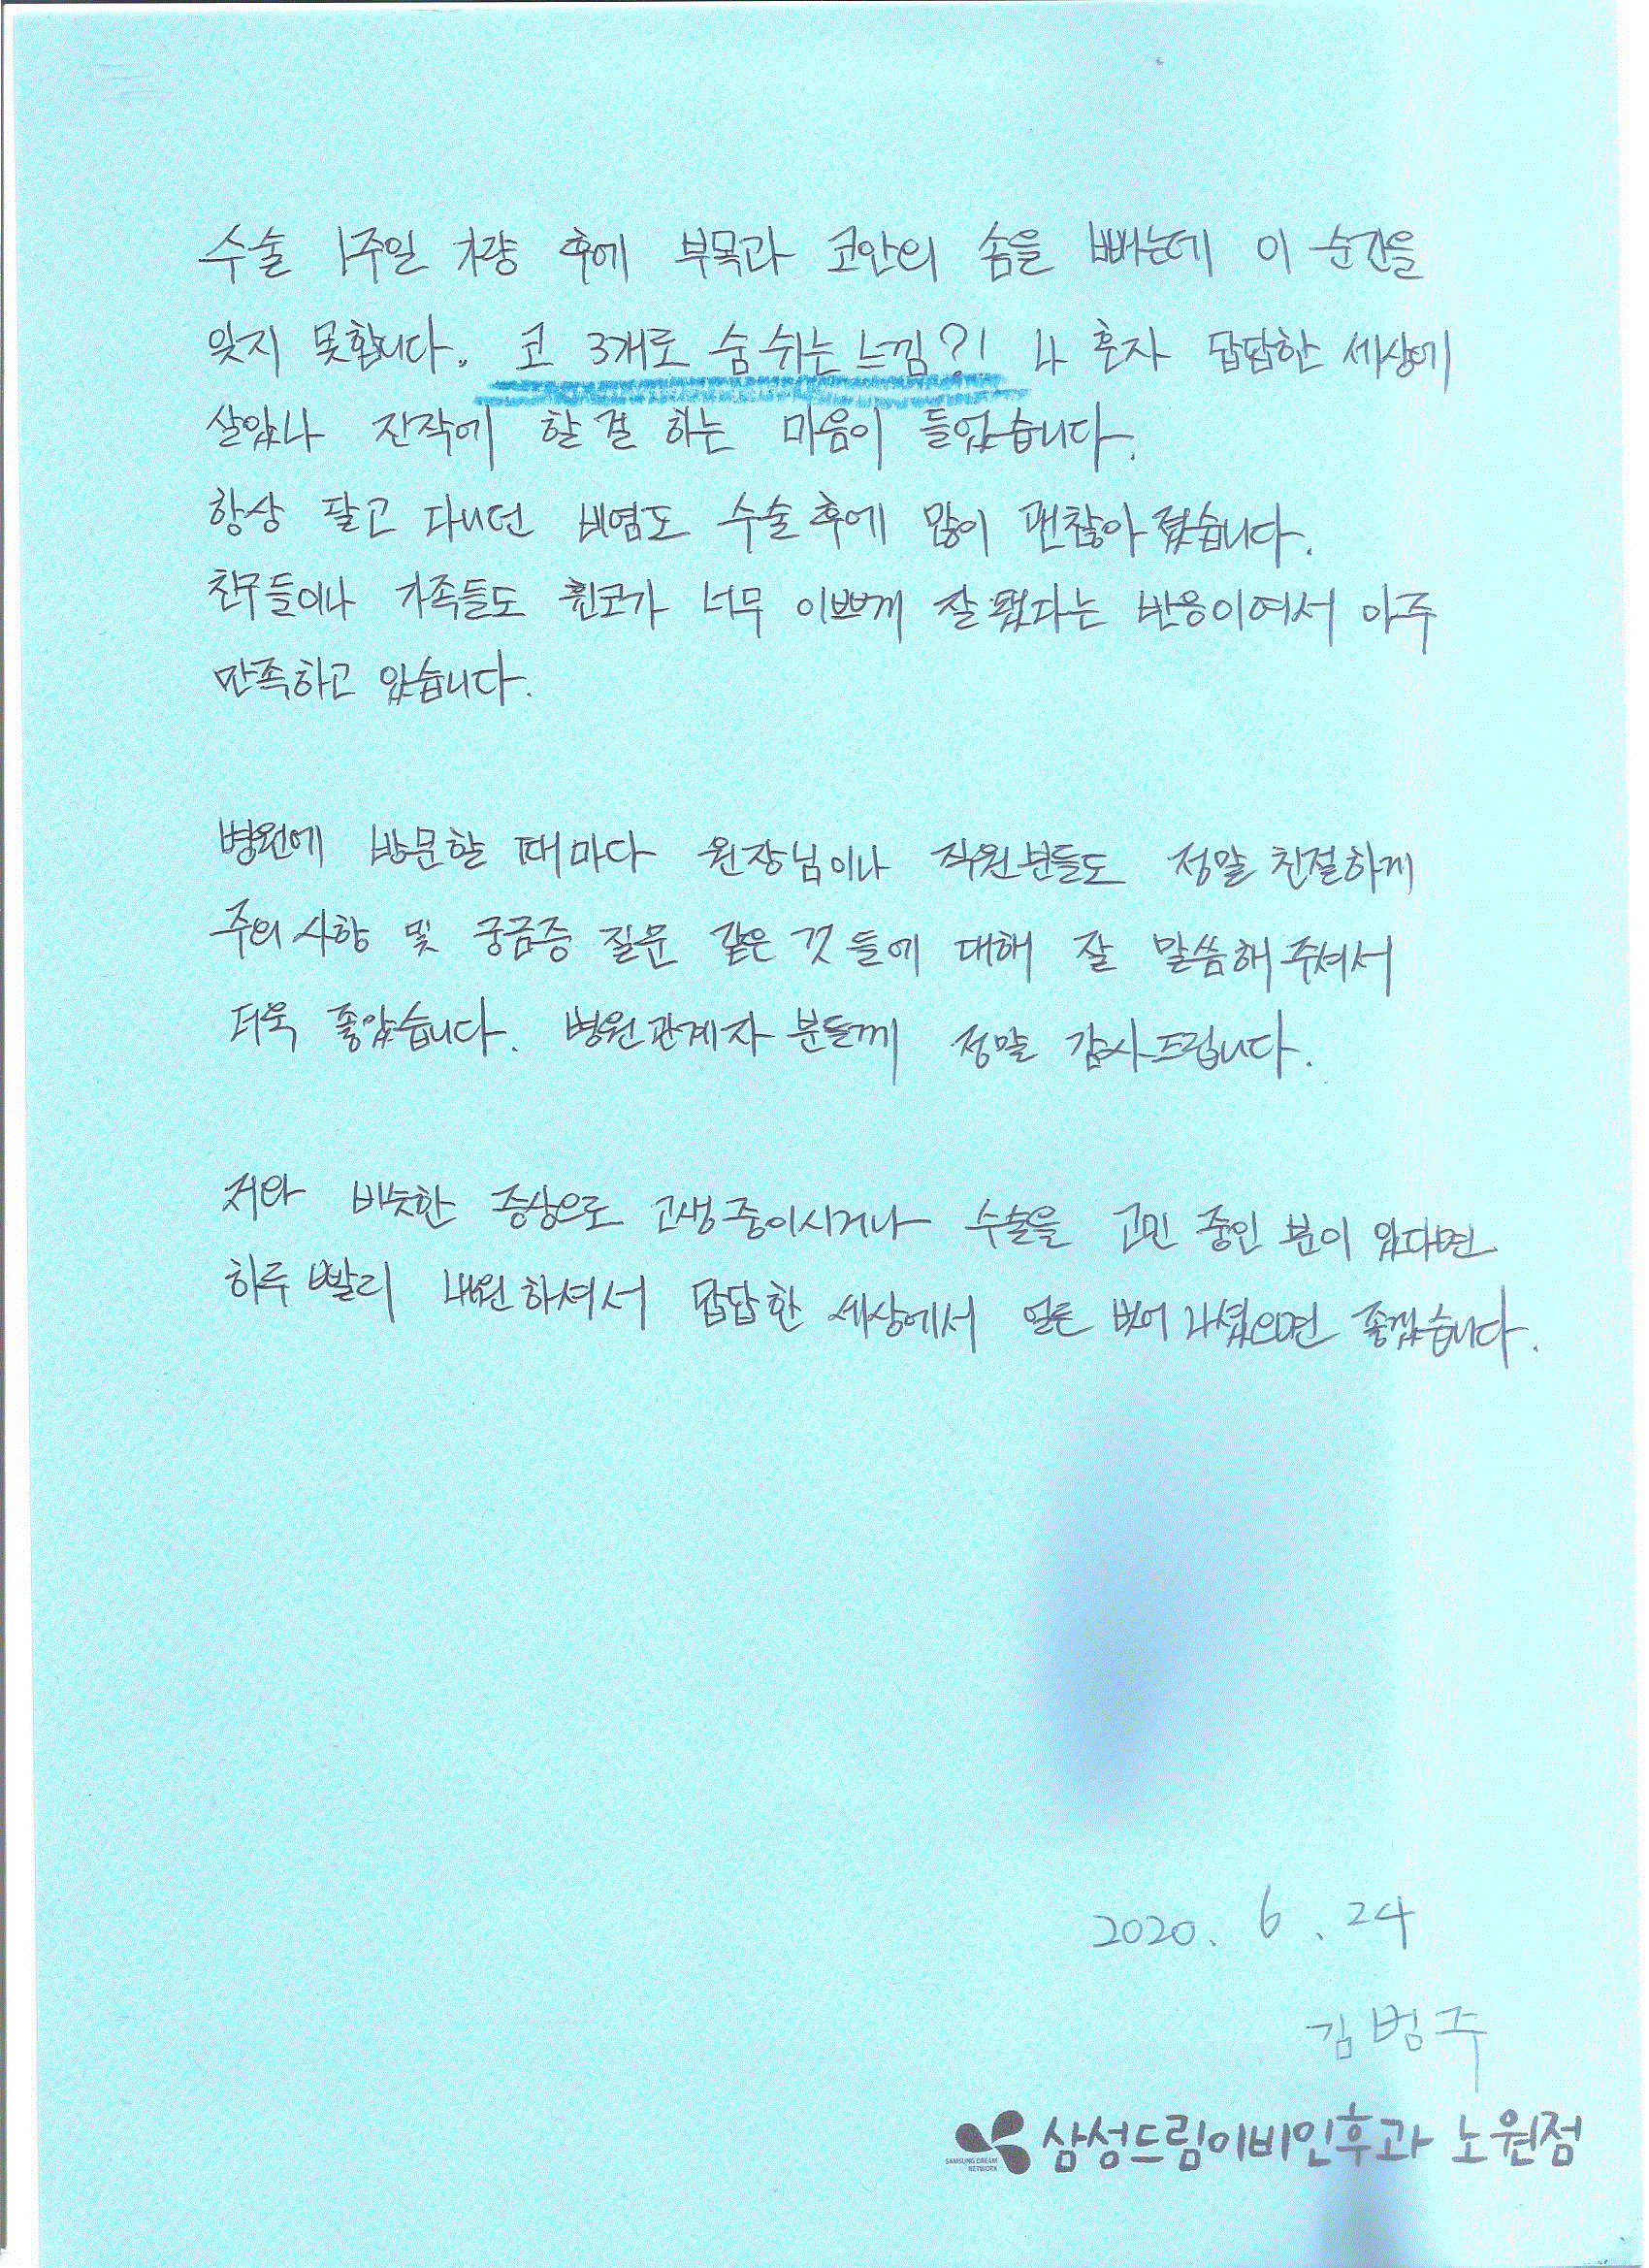 수술 1주일 가량 후에 부목과 코안의 솜을 빼는데 이 순간을
잊지 못합니다. 코 3개로 숨 쉬는 느낌?! 나 혼자 답답한 세상에
살았나 진작에 할걸 하는 마음이 들었습니다.
항상 달고 다니던 비염도 수술 후에 많이 괜찮아 졌습니다.
친구들이나 가족들도 휜코가 너무 이쁘게 잘 됐다는 반응이여서 아주
만족하고 있습니다.
병원에 방문할 때마다 원장님이나 직원분들도 정말 친절하게
주의 사항 및 궁금증 질문 같은 것 들에 대해 잘 말씀해 주셔서
더욱 좋았습니다. 병원 관계자 분들께 정말 감사드립니다.
저와 비슷한 증상으로 고생중이시거나 수술을 고민 중인 분이 있다면
하루 빨리 내원하셔서 답답한 세상에서 얼른 벗어 나셨으면 좋겠습니다.
2020. 6. 24
김범주
SAMSUNG DREAM
NETWORK
삼성드림이비인후과 노원점